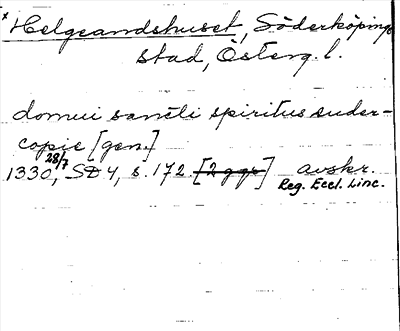 * Helgeandshuset, Söderköpings
stad, Österg. l.
domui sancti spiritus suder-
copie [gen.]
1330 28/7, SD 4, s. 172. [2 ggr] avskr.
Reg. Eccl. Linc.